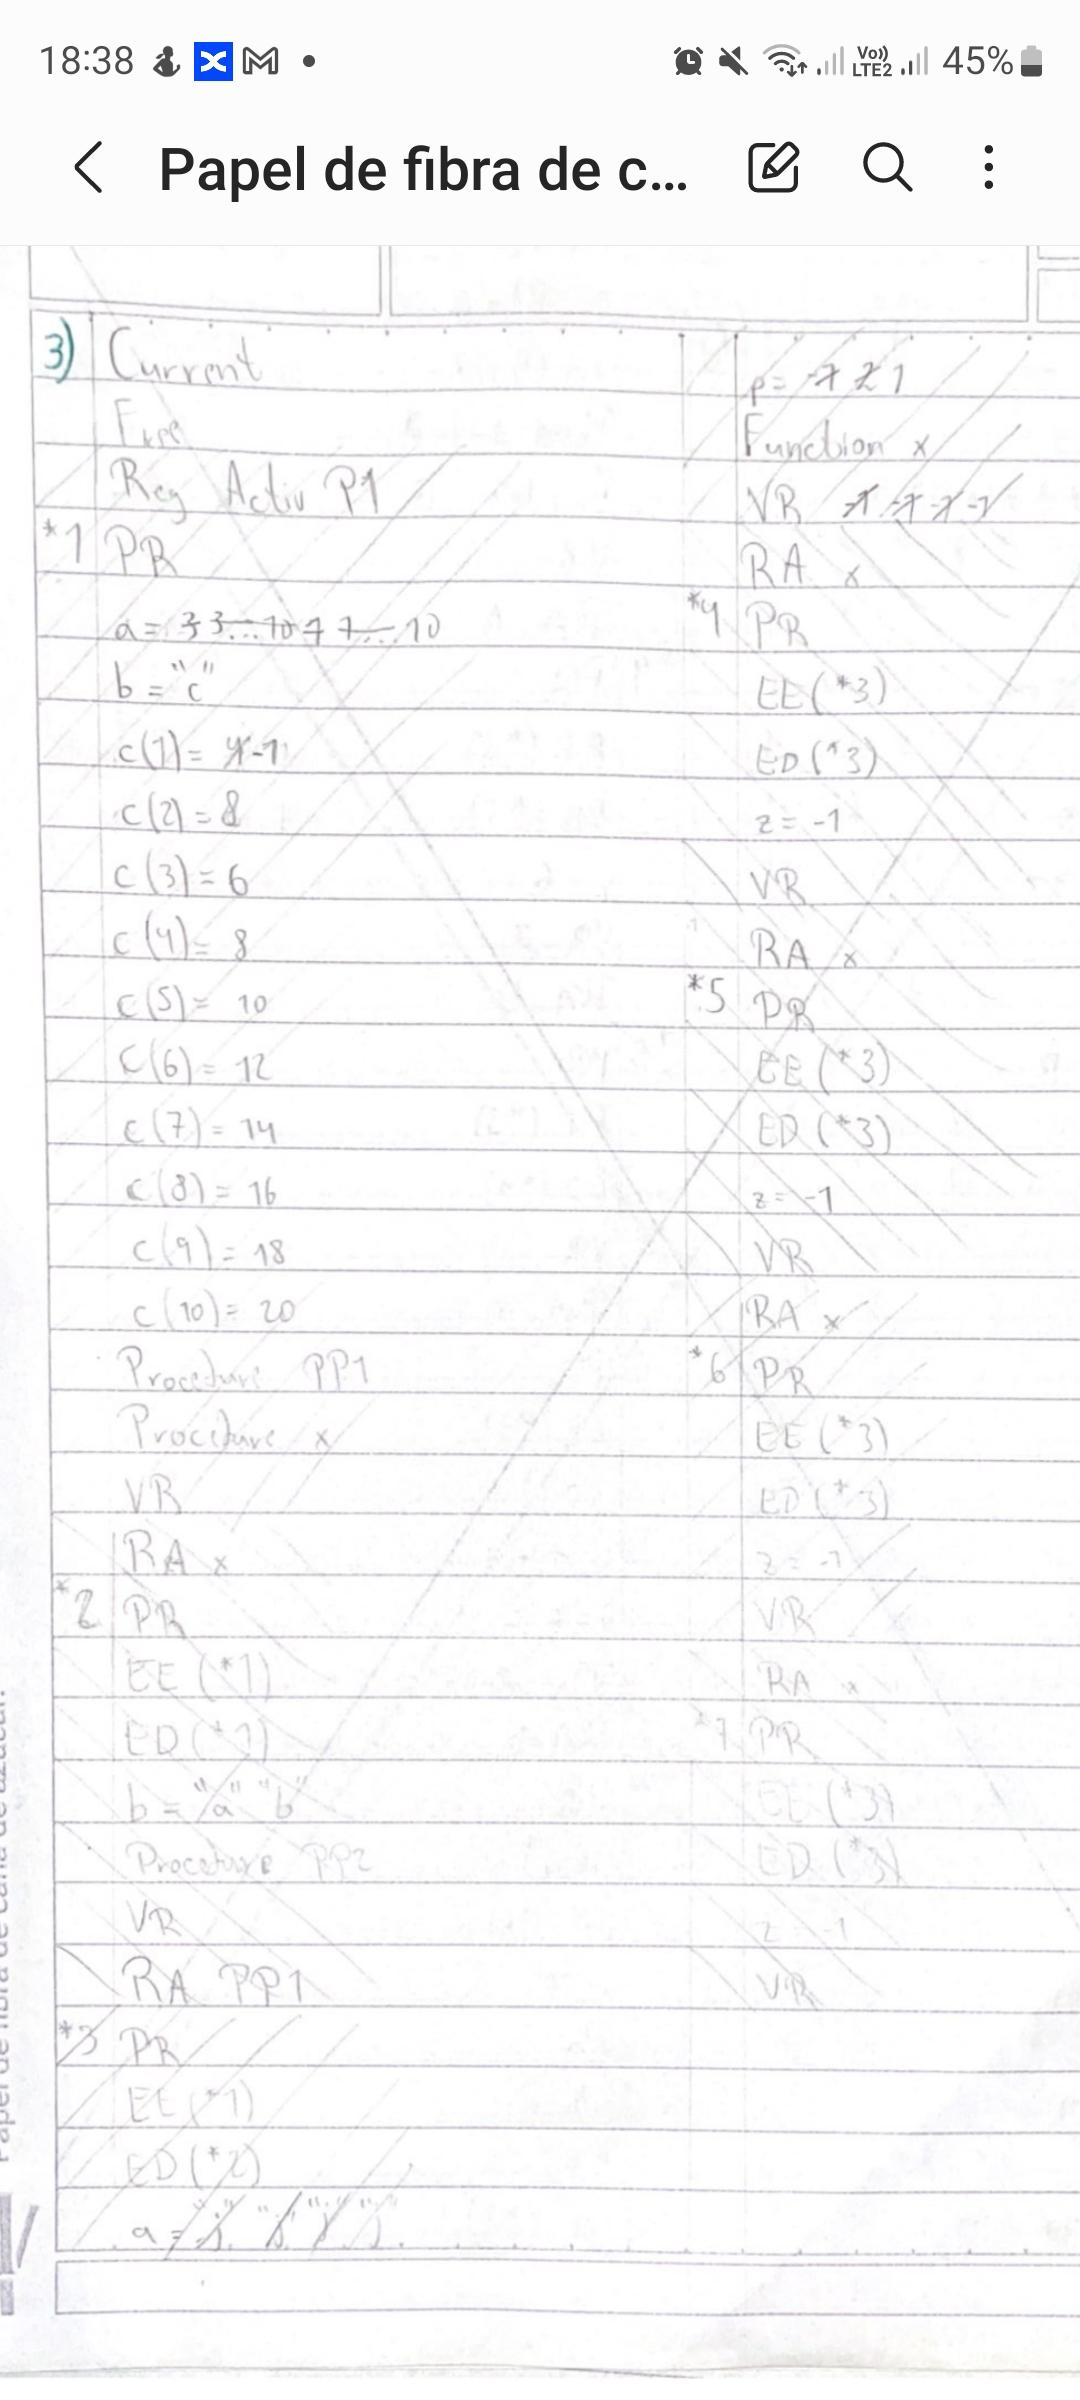 18:38
Vo)) LTE2 45%
Papel de fibra de c...
3) Current
Free
Reg Activ P1
*1 PR
a = 3 3...10 7 7...10
b = "c"
c(1) = 4 -1
c(2) = 8
c(3) = 6
c(4) = 8
c(5) = 10
c(6) = 12
c(7) = 14
c(8) = 16
c(9) = 18
c(10) = 20
Procedure PP1
Procedure x
VR
RA x
*2 PR
EE (*1)
ED (*1)
b = "a" "b"
Procedure PP2
VR
RA PP1
*3 PR
EE (*1)
ED (*2)
a = "j" "j" "j" "j"
p = -7 2 1
Function x
VR -1 -1 -1 -1
RA x
*4 PR
EE (*3)
ED (*3)
z = -1
VR
RA x
*5 PR
EE (*3)
ED (*3)
z = -1
VR
RA x
*6 PR
EE (*3)
ED (*3)
z = -1
VR
RA x
*7 PR
EE (*3)
ED (*3)
z = -1
VR
Papel de fibra de caña de azúcar.